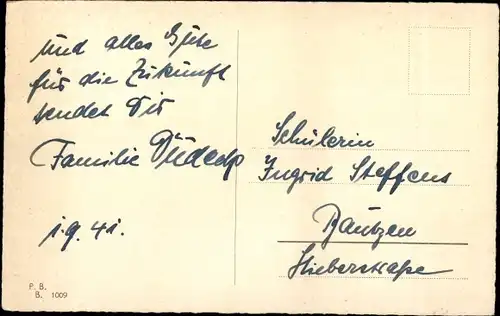 und alles Gute
für die Zukunft
sendet Dir
Familie
1.9.41.
P. B.
B. 1009
Schülerin
Ingrid Steffens
Bautzen